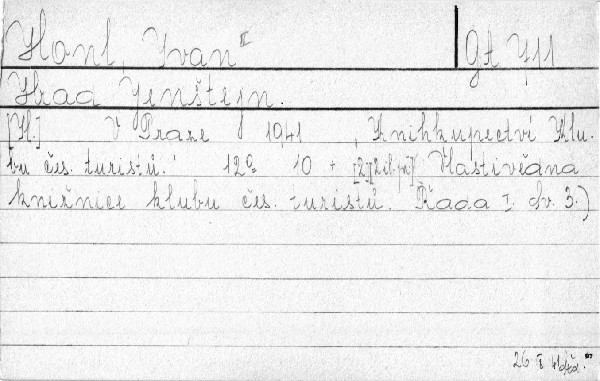 Honl, Ivan II Gt 711
Hrad Jenštejn.
[Il.] V Praze 1941, Knihkupectví Klu-
bu čes. turistů. 12° 10 + [2] Vlastivědná
knižnice klubu čes. turistů. Řada I. Sv. 3.)
26 I